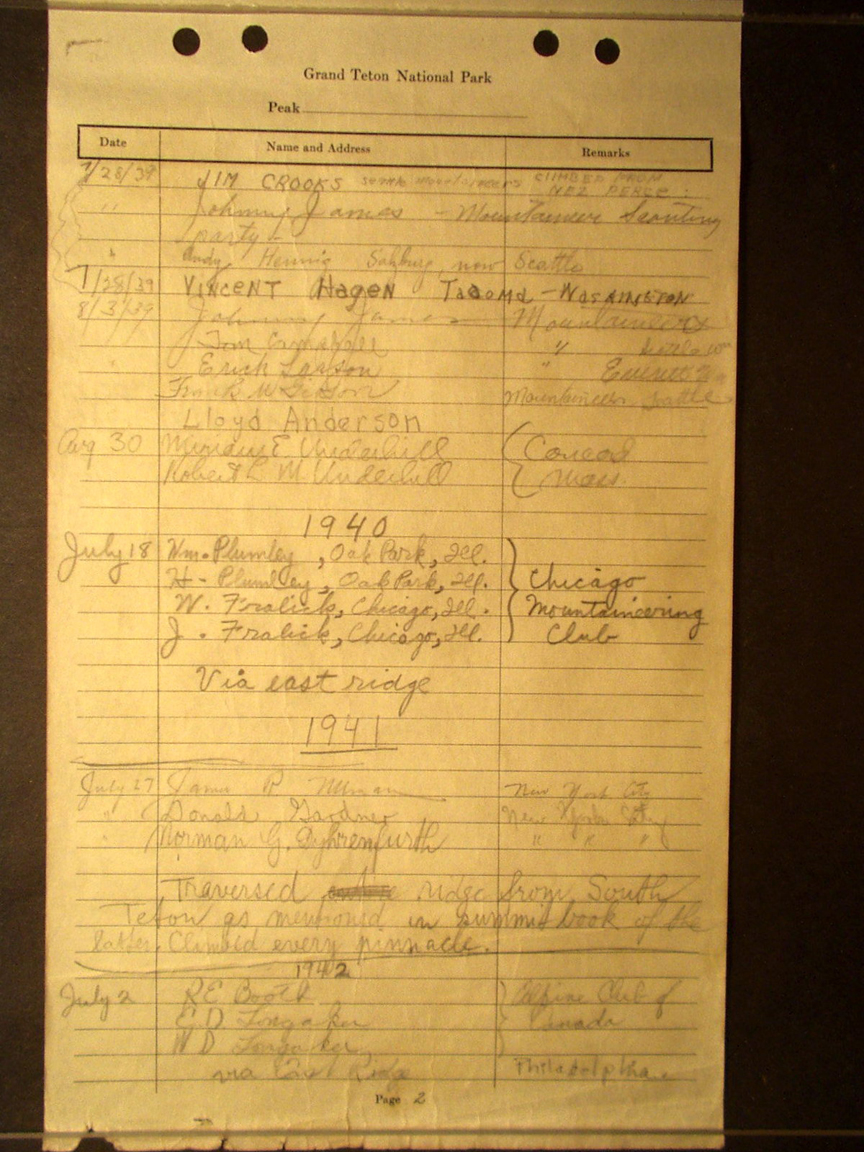 Grand Teton National Park
Peak
Date Name and Address Remarks
7/28/39 JIM CROOKS Seattle Mountaineers CLIMBED FROM
NEZ PERCE
" Johnny James - Mountaineer Scouting
party -
" Andy Hennig Salzburg, now Seattle
7/28/39 VINCENT HAGEN TACOMA - WASHINGTON
8/3/39 Johnny James Mountaineers
Tom " Seattle Wn
" Erick Larson " Everett
Frank M Gibson Mountaineers Seattle
Lloyd Anderson
Aug 30 Miriam E. Underhill Concord
Robert L. M. Underhill Mass.
1940
July 18 Wm. Plumley, Oak Park, Ill.
H - Plumley, Oak Park, Ill. Chicago
W. Fralick, Chicago, Ill. Mountaineering
J. Fralick, Chicago, Ill. Club
Via east ridge
1941
July 27 James R New York City
" Donald Gardner New York City
" Norman G. Dyhrenfurth " " "
Traversed ridge from South
Teton as mentioned in summit book of the
latter. Climbed every pinnacle.
1942
July 2 RE Booth Alpine Club of
E D Longaker Canada
W D Longaker
via East Ridge Philadelphia.
Page 2